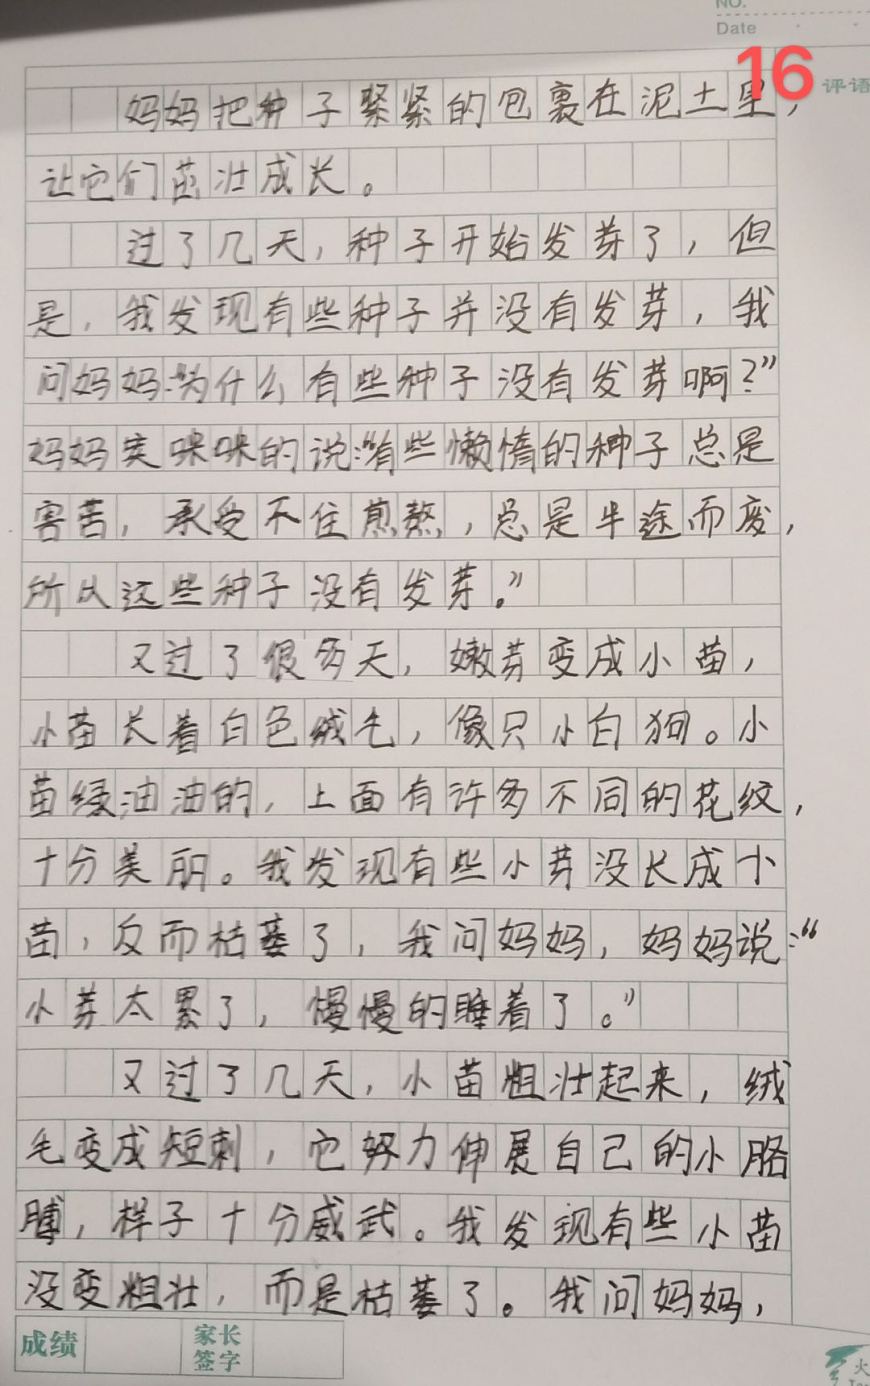 NO.
Date
16
评语
妈妈把种子紧紧的包裹在泥土里，
让它们茁壮成长。
过了几天，种子开始发芽了，但
是，我发现有些种子并没有发芽，我
问妈妈：“为什么有些种子没有发芽啊？”
妈妈笑咪咪的说：“有些懒惰的种子总是
害苦，承受不住煎熬，总是半途而废，
所以这些种子没有发芽。”
又过了很多天，嫩芽变成小苗，
小苗长着白色绒毛，像只小白狗。小
苗绿油油的，上面有许多不同的花纹，
十分美丽。我发现有些小芽没长成小
苗，反而枯萎了，我问妈妈，妈妈说：“
小芽太累了，慢慢的睡着了。”
又过了几天，小苗粗壮起来，绒
毛变成短刺，它努力伸展自己的小胳
膊，样子十分威武。我发现有些小苗
没变粗壮，而是枯萎了。我问妈妈，
成绩
家长
签字
火